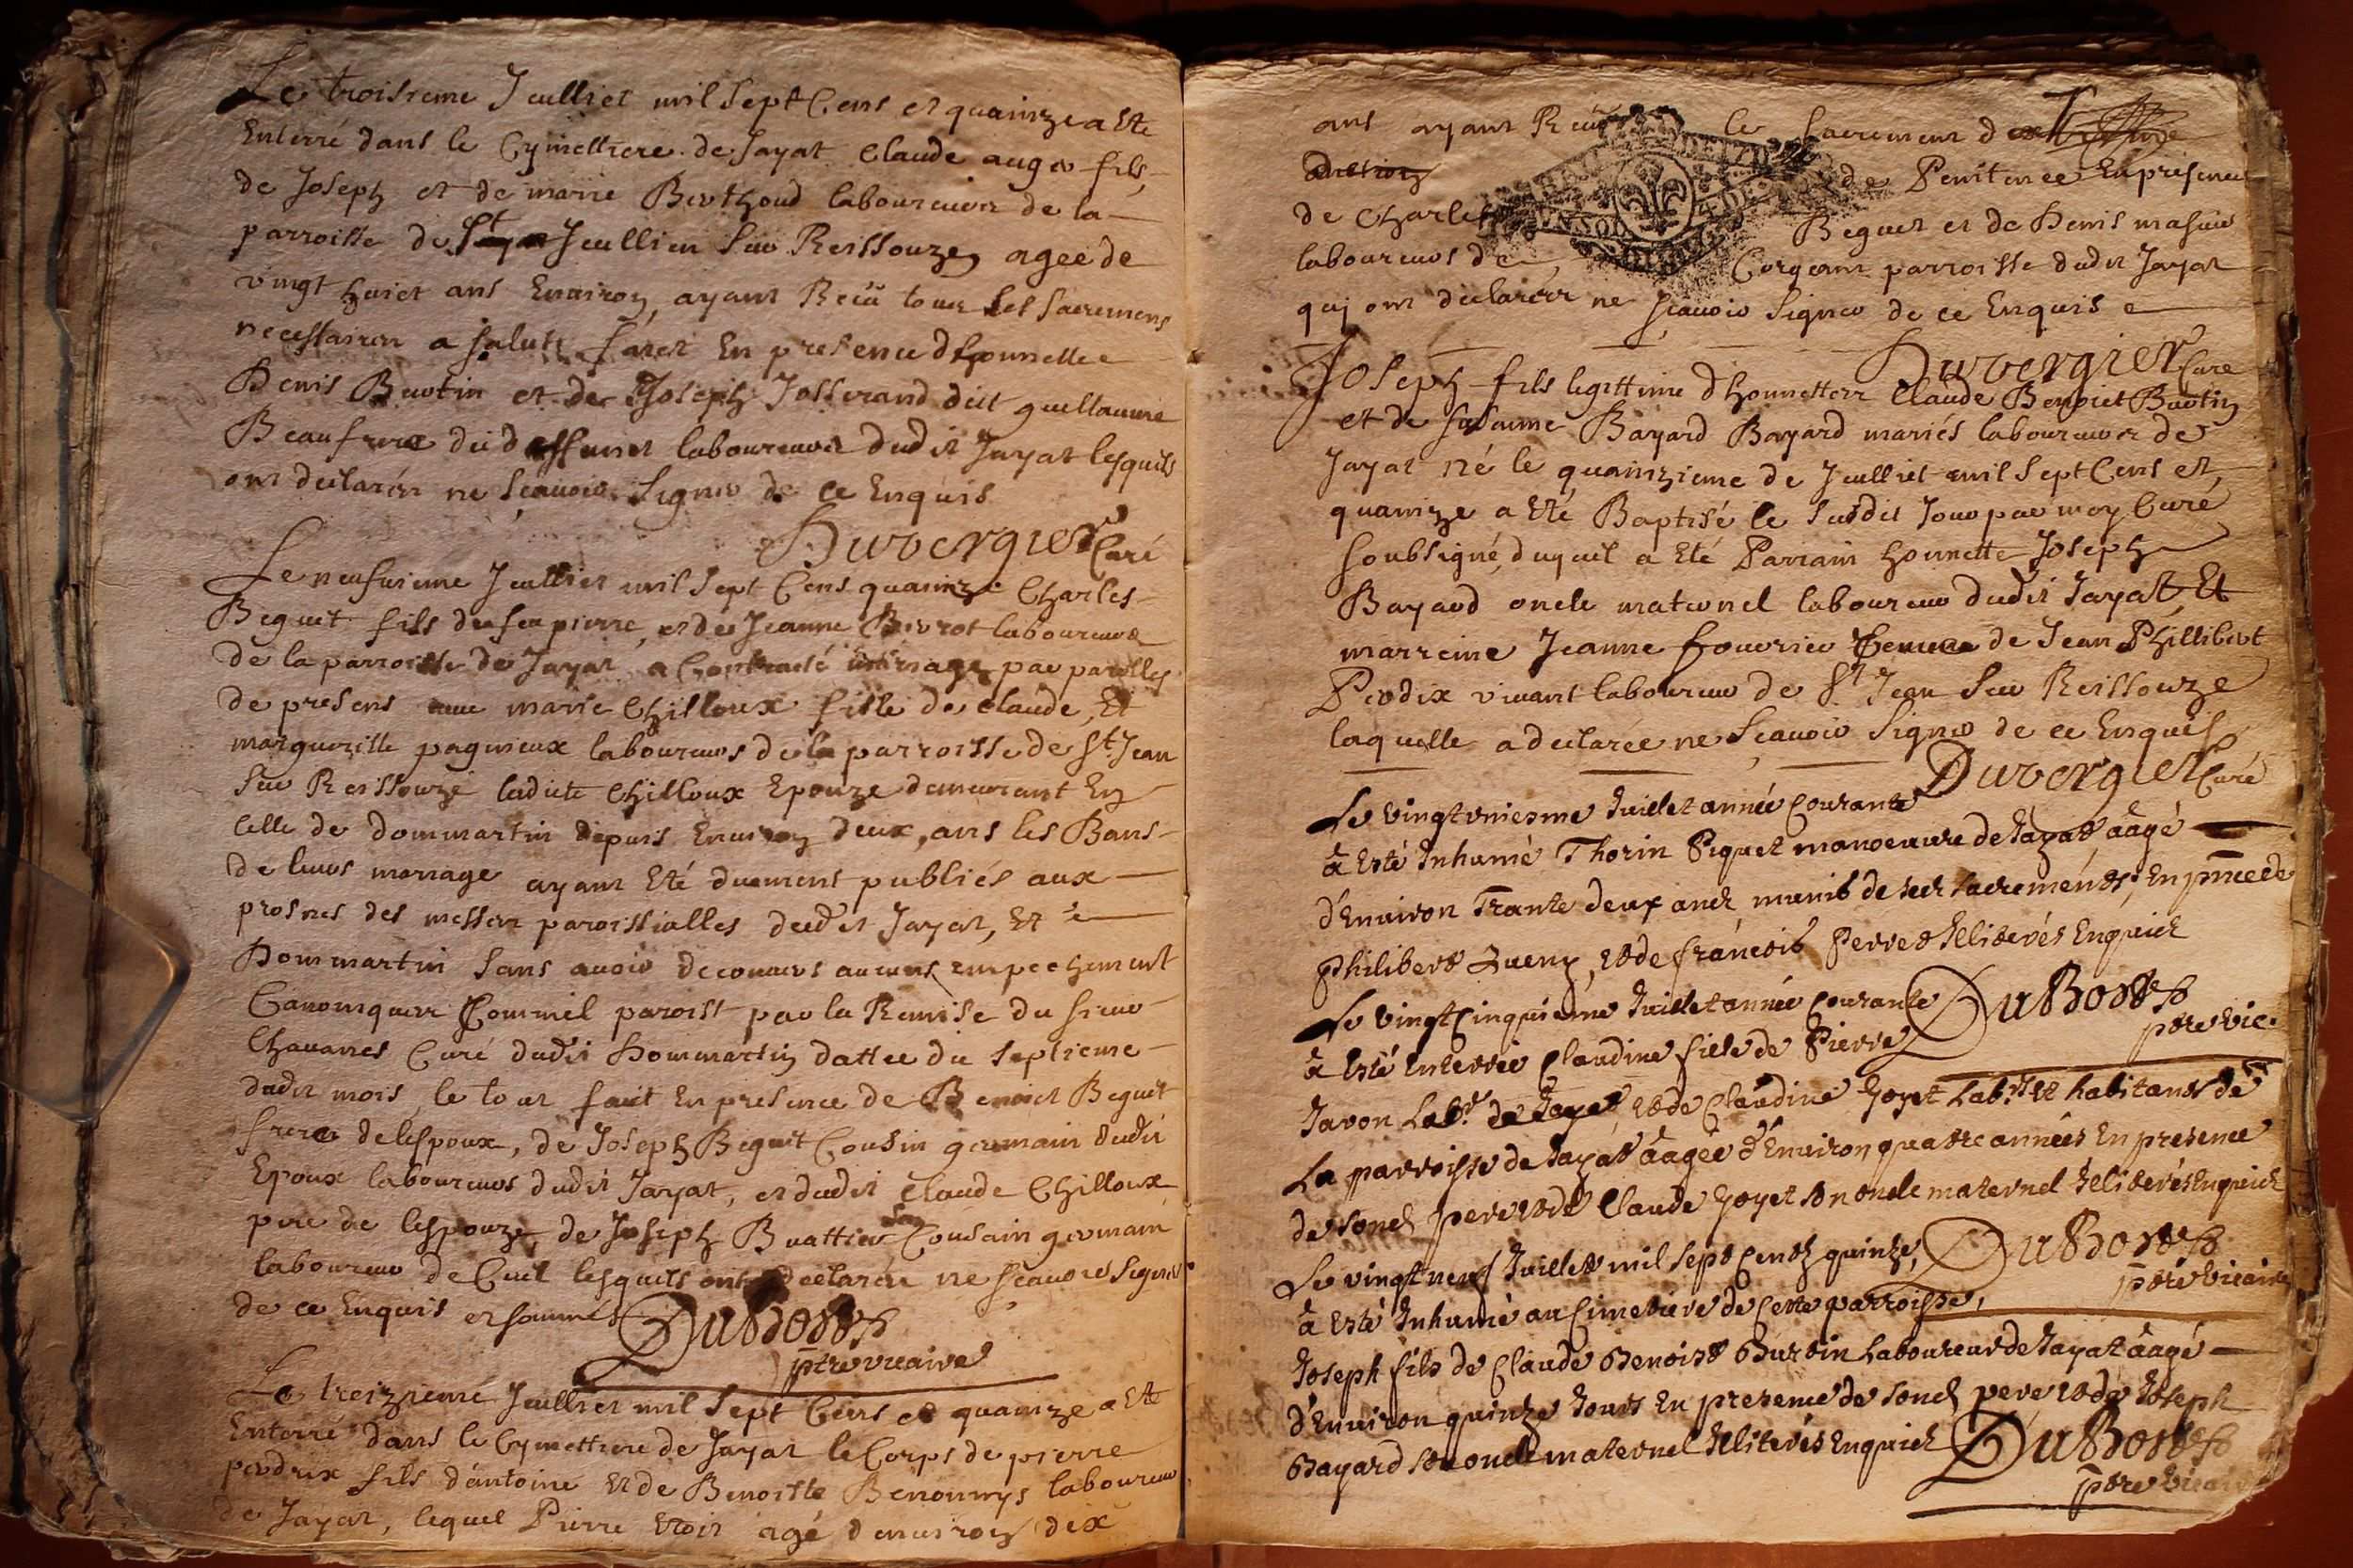 Le troisieme Jeulliet mil Sept Cens et quainze a Ete
Enterré dans le Cymettiere de Jayat Claude auger fils
de Joseph et de marie Berthoud laboureurs de la
parroisse de St Jeullien Sur Reissouze agee de
vingt huict ans Environ, ayant Receu tous les Sacremens
necessaires a Salut faict En presence d'honnettes
Denis Buotin et de Joseph Josserand dict guellaume
Beaufrere du deffunct laboureurs dudit Jayat lesquels
ont declarés ne Sçauoir Signer de ce Enquis
Duvergier Curé
Le neufuieme Jeulliet mil Sept Cens quainze Charles
Beguet fils de feu pierre, et de Jeanne laboureurs
de la parroisse de Jayat a Contracté mariage par parolles
de presens auec marie Chilloux fille de Claude, Et
marguerille pagnieux laboureurs de la parroisse de St Jean
Sur Reissouze ladicte Chilloux Epouze demeurant En
celle de dommartin depuis Enuiron deux ans les Bans
de leurs mariage ayant Eté duement publiés aux
prosnes des messes paroissialles dudit Jayat, Et
Dommartin Sans auoir decouuers aucuns empechement
Canonique Comme il paroist par la Remise du Sieur
Chauanes Curé dudit Dommartin dattee du Septieme
dudit mois, le tout faict En presence de Benoict Beguet
frere de lespoux, de Joseph Beguet Cousin germain dudit
Epoux laboureurs dudit Jayat, et dudit Claude Chilloux
pere de lespouze, de Joseph Buattier Son Cousain germain
laboureur de Cuet lesquels ont declarés ne Sçauoir Signer
de ce Enquis et Sommés DuBost
ptre vicaire
Le treizieme Jeulliet mil Sept Cens et quainze a Ete
Enterré dans le Cymettiere de Jayat le Corps de pierre
perdrix fils d'antoine Et de Benoiste laboureur
de Jayat, lequel Pierre Etoit agé d'enuiron dix
ans ayant Receu le Sacrement de
de Penitence En presence
de Charles Beguet et de Denis
laboureurs de parroisse dudit Jayat
qui ont declarés ne Sçauoir Signer de ce Enquis
Duvergier Curé
Joseph fils legittime d'honnettes Claude Benoict Buotin
et de Susanne Bayard Bayard mariés laboureurs de
Jayat né le quainzieme de Jeulliet mil Sept Cens et
quainze a Eté Baptisé le Susdit Jour par moy Curé
Soubsigné, duquel a Eté Parrain honnette Joseph
Bayard oncle maternel laboureur dudit Jayat, Et
marreine Jeanne fourrier femme de Jean Phillibert
Perdix viuant laboureur de St Jean Sur Reissouze
laquelle a declarée ne Sçauoir Signer de ce Enquise
Duvergier Curé
Le vingt vniesme Juillet année Courante
à Esté Inhumé Thorin Piquet manoeuure de Jayat, aâgé
d'Enuiron Trante deux ans, munis de ses sacrements, En pnce de
Philibert et de françois Perret Illiterés Enquick
DuBost
ptre vic.
Le vingt Cinquieme Juillet année Courante
à Esté Enterrée Claudine fille de Pierre
Javon Labr. de Jayat et de Claudine Goyet Labrs. et habitans de
La parroisse de Jayat aâgée d'Enuiron quatre années En presence
de Sond. pere et de Claude Goyet son oncle maternel Illiterés Enquick
DuBost
ptre vicaire
Le vingt neuf Juillet mil Sept Cents quinze,
à Esté Inhumé au Cimetiere de Cette parroisse,
Joseph fils de Claude Benoist Burtin Laboureur de Jayat aâgé
d'Enuiron quinze Jours En presence de Sond. pere et de Joseph
Bayard son oncle maternel Illiterés Enquick DuBost
ptre vicaire